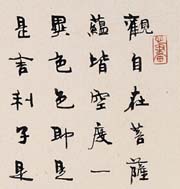 觀自在菩薩
蘊皆空度一
異色色即是
是舍利子是